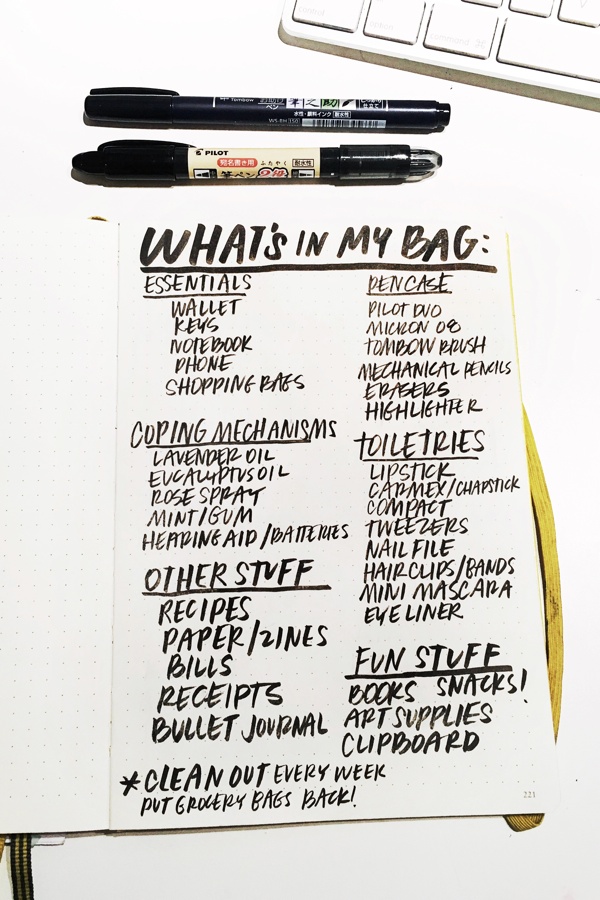 Tombow
水性・顔料インク 耐水性
WS-BH 150
PILOT
宛名書き用 ふたやく 耐水性
筆ペン
WHAT'S IN MY BAG:
ESSENTIALS
WALLET
KEYS
NOTEBOOK
PHONE
SHOPPING BAGS
COPING MECHANISMS
LAVENDER OIL
EUCALYPTUS OIL
ROSE SPRAY
MINT/GUM
HEARING AID/BATTERIES
OTHER STUFF
RECIPES
PAPER/ZINES
BILLS
RECEIPTS
BULLET JOURNAL
PENCASE
PILOT DUO
MICRON 08
TOMBOW BRUSH
MECHANICAL PENCILS
ERASERS
HIGHLIGHTER
TOILETRIES
LIPSTICK
CARMEX/CHAPSTICK
COMPACT
TWEEZERS
NAIL FILE
HAIRCLIPS/BANDS
MINI MASCARA
EYELINER
FUN STUFF
BOOKS SNACKS!
ART SUPPLIES
CLIPBOARD
*CLEAN OUT EVERY WEEK
PUT GROCERY BAGS BACK!
221